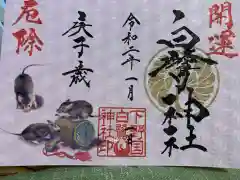 開運
白鷺神社
令和二年一月
庚子歳
厄除
下野国
白鷺
神社印